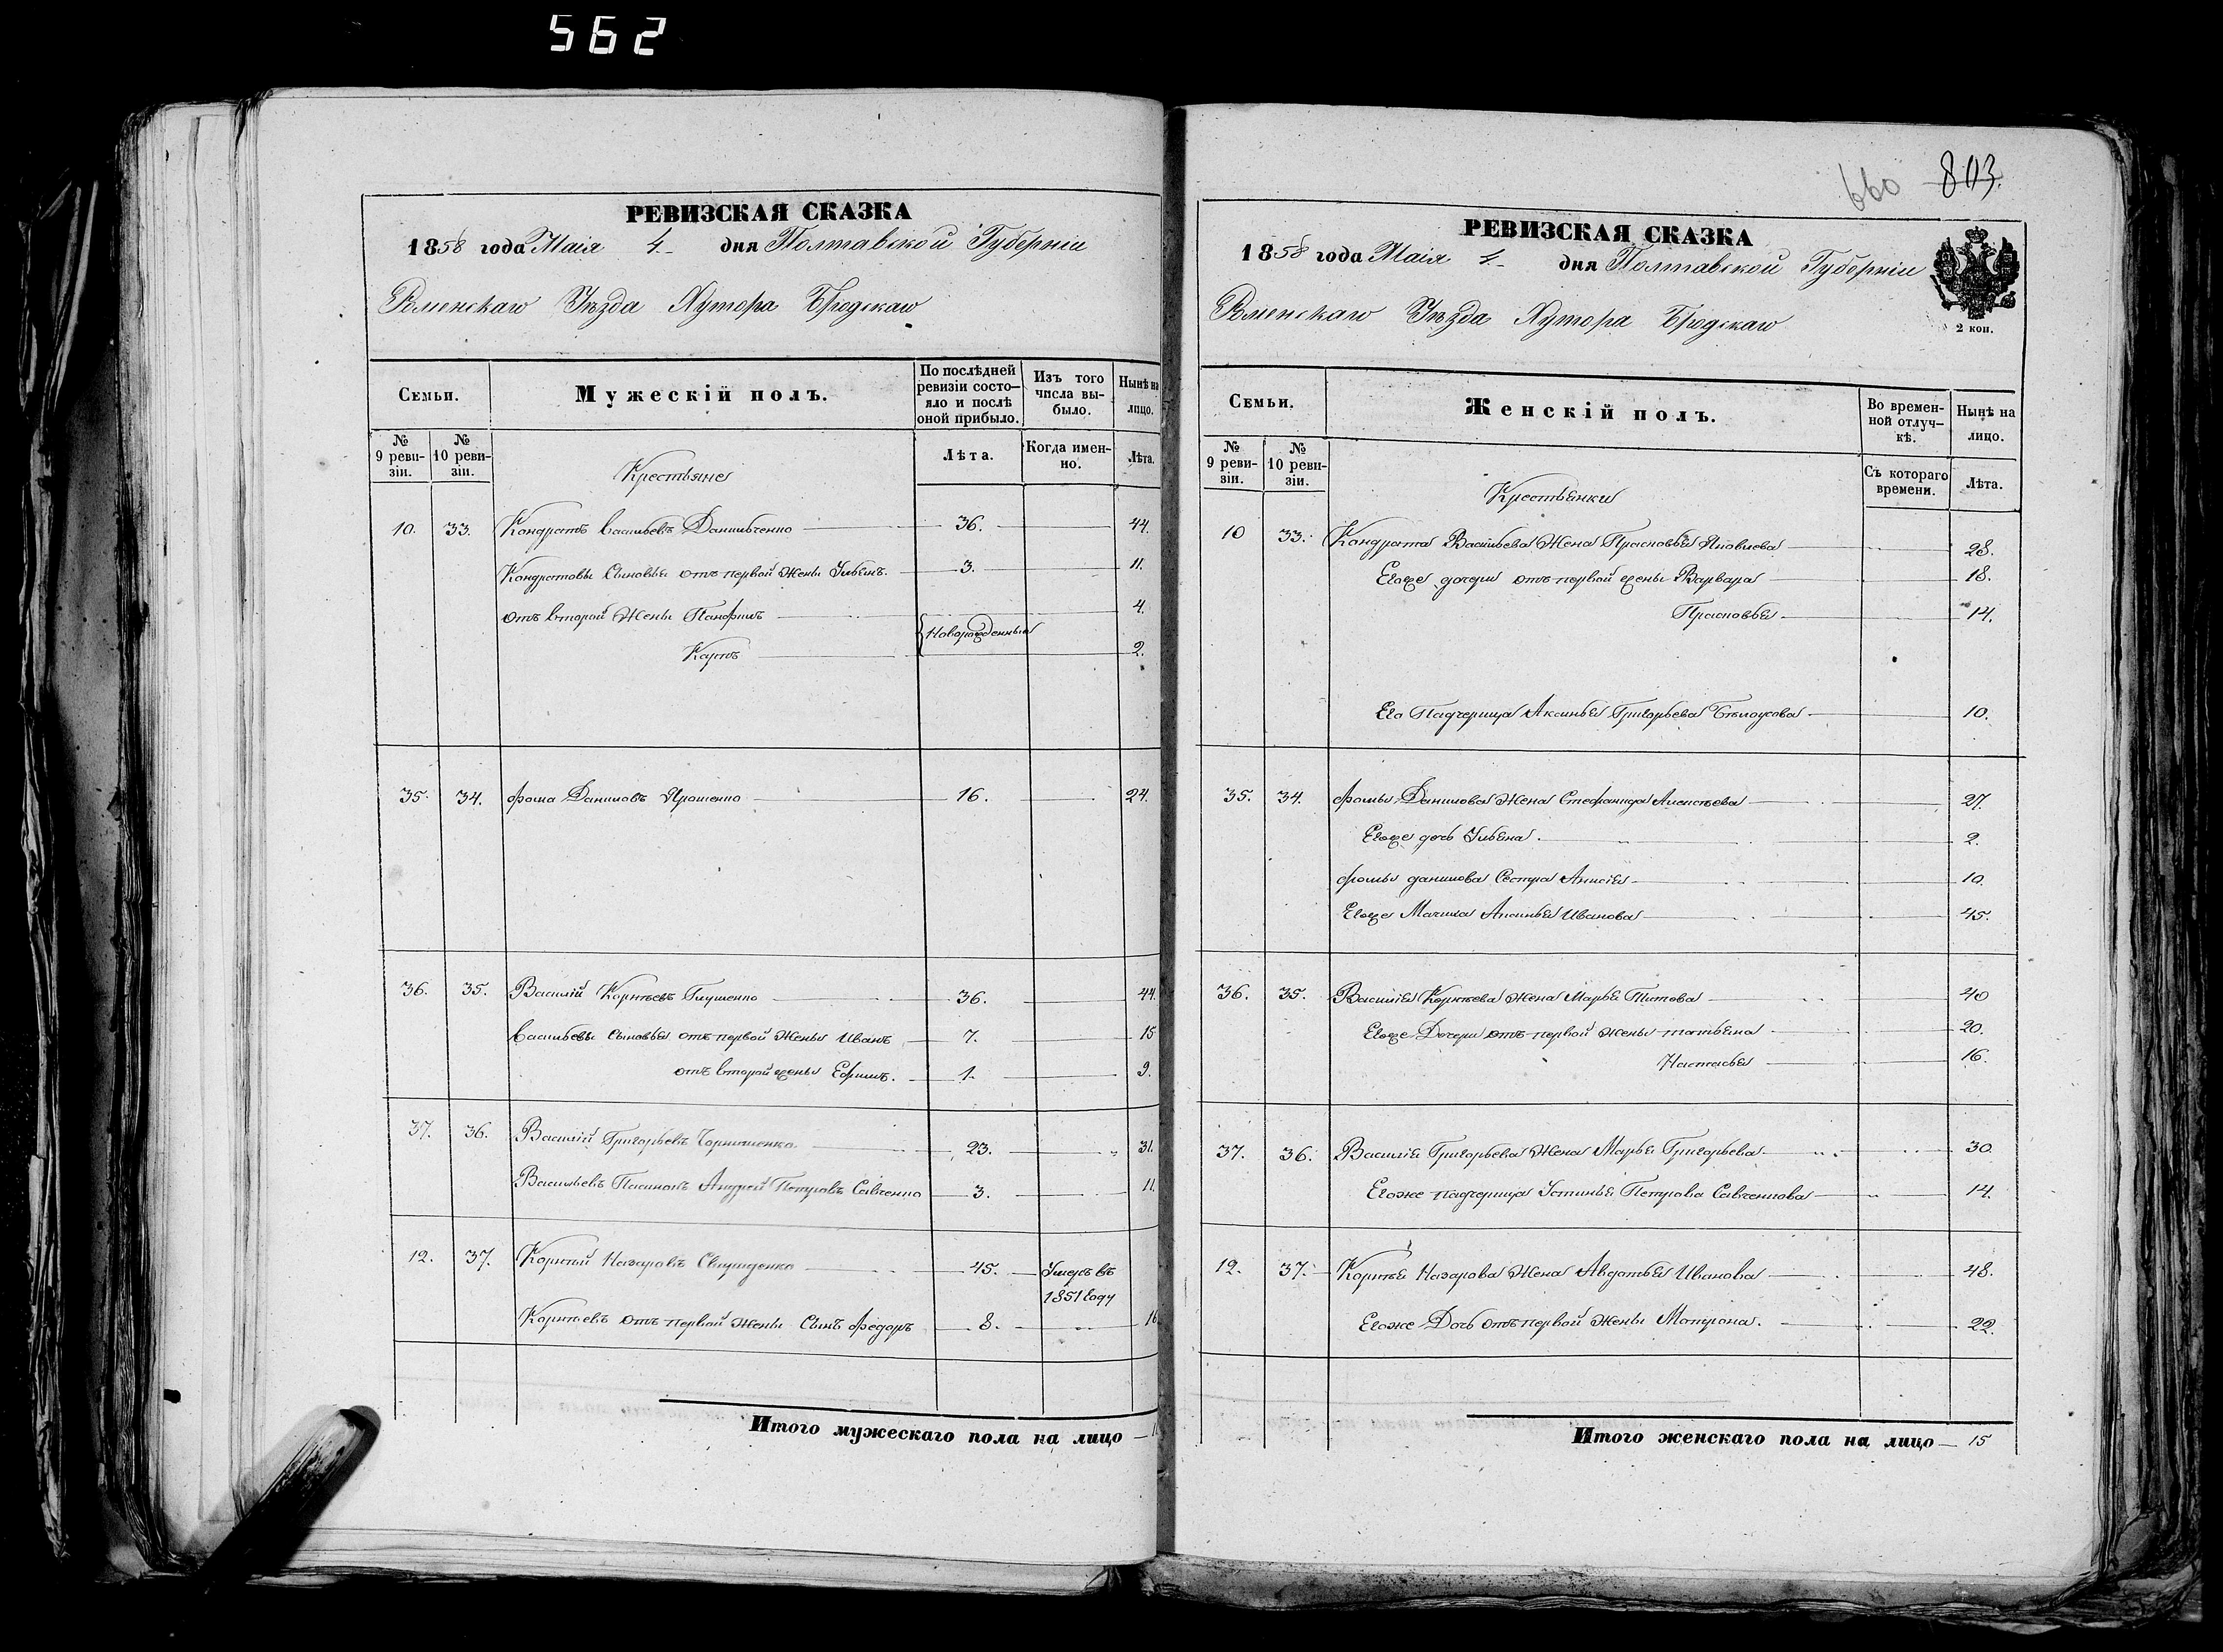 562
РЕВИЗСКАЯ СКАЗКА
1858 года Маія 4. дня Полтавской Губерніи
Роменскаго Уѣзда Хутора Бродскаго
Семьи.
Мужескій полъ.
По послѣдней ревизіи состо-
яло и послѣ оной прибыло.
Изъ того числа вы-
было.
Нынѣ на лицо.
№ 9 реви-
зіи.
№ 10 реви-
зіи.
Крестьяне
Лѣта.
Когда имен-
но.
Лѣта.
10. 33. Кондратъ Васильевъ Данильченко 36. 44.
Кондратовы Сыновья отъ первой Жены Ульянъ. 3. 11.
отъ второй Жены Панфилъ 4.
Новорожденные
Карпъ 2.
35. 34. Фома Даниловъ Ярошенко 16. 24.
36. 35. Василій Корнѣевъ Глущенко 36. 44.
Васильевы Сыновья отъ первой Жены Иванъ 7. 15
отъ второй жены Ефимъ. 1. 9.
37. 36. Василій Григорьевъ 23. 31.
Васильевъ Пасынокъ Андрей Петровъ Савченко 3. 11.
12. 37. Корнѣй Назаровъ 45. Умеръ въ
1851 году
Корнѣевъ отъ первой Жены Сынъ Федоръ 8. 16
Итого мужескаго пола на лицо
660 803.
РЕВИЗСКАЯ СКАЗКА
1858 года Маія 4. дня Полтавской Губерніи
Роменскаго Уѣзда Хутора Бродскаго
2 коп.
Семьи.
Женскій полъ.
Во времен-
ной отлуч-
кѣ.
Нынѣ на лицо.
№ 9 реви-
зіи.
№ 10 реви-
зіи.
Крестьянки
Съ котораго времени.
Лѣта.
10 33. Кондрата Васильева Жена Прасковья Яковлева 28.
Егоже дочери отъ первой жены Варвара 18.
Прасковья 14.
Его Падчерица Аксинья Григорьева Бѣлоусова 10.
35. 34. Фомы Данилова Жена Стефанида Алексѣева 27.
Егоже дочь Ульяна. 2.
Фомы данилова Сестра Анисія 10.
Егоже Мачиха Аксинья Иванова 45.
36. 35. Василія Корнѣева Жена Марья Титова 40
Егоже Дочери отъ первой Жены татьяна 20.
Настасья 16.
37. 36. Василія Григорьева Жена Марья Григорьева 30.
Егоже падчерица Устинья Петрова Савченкова 14.
12. 37. Корнѣя Назарова Жена Авдотья Иванова 48.
Егоже Дочь отъ первой Жены Мотрона. 22.
Итого женскаго пола на лицо 15